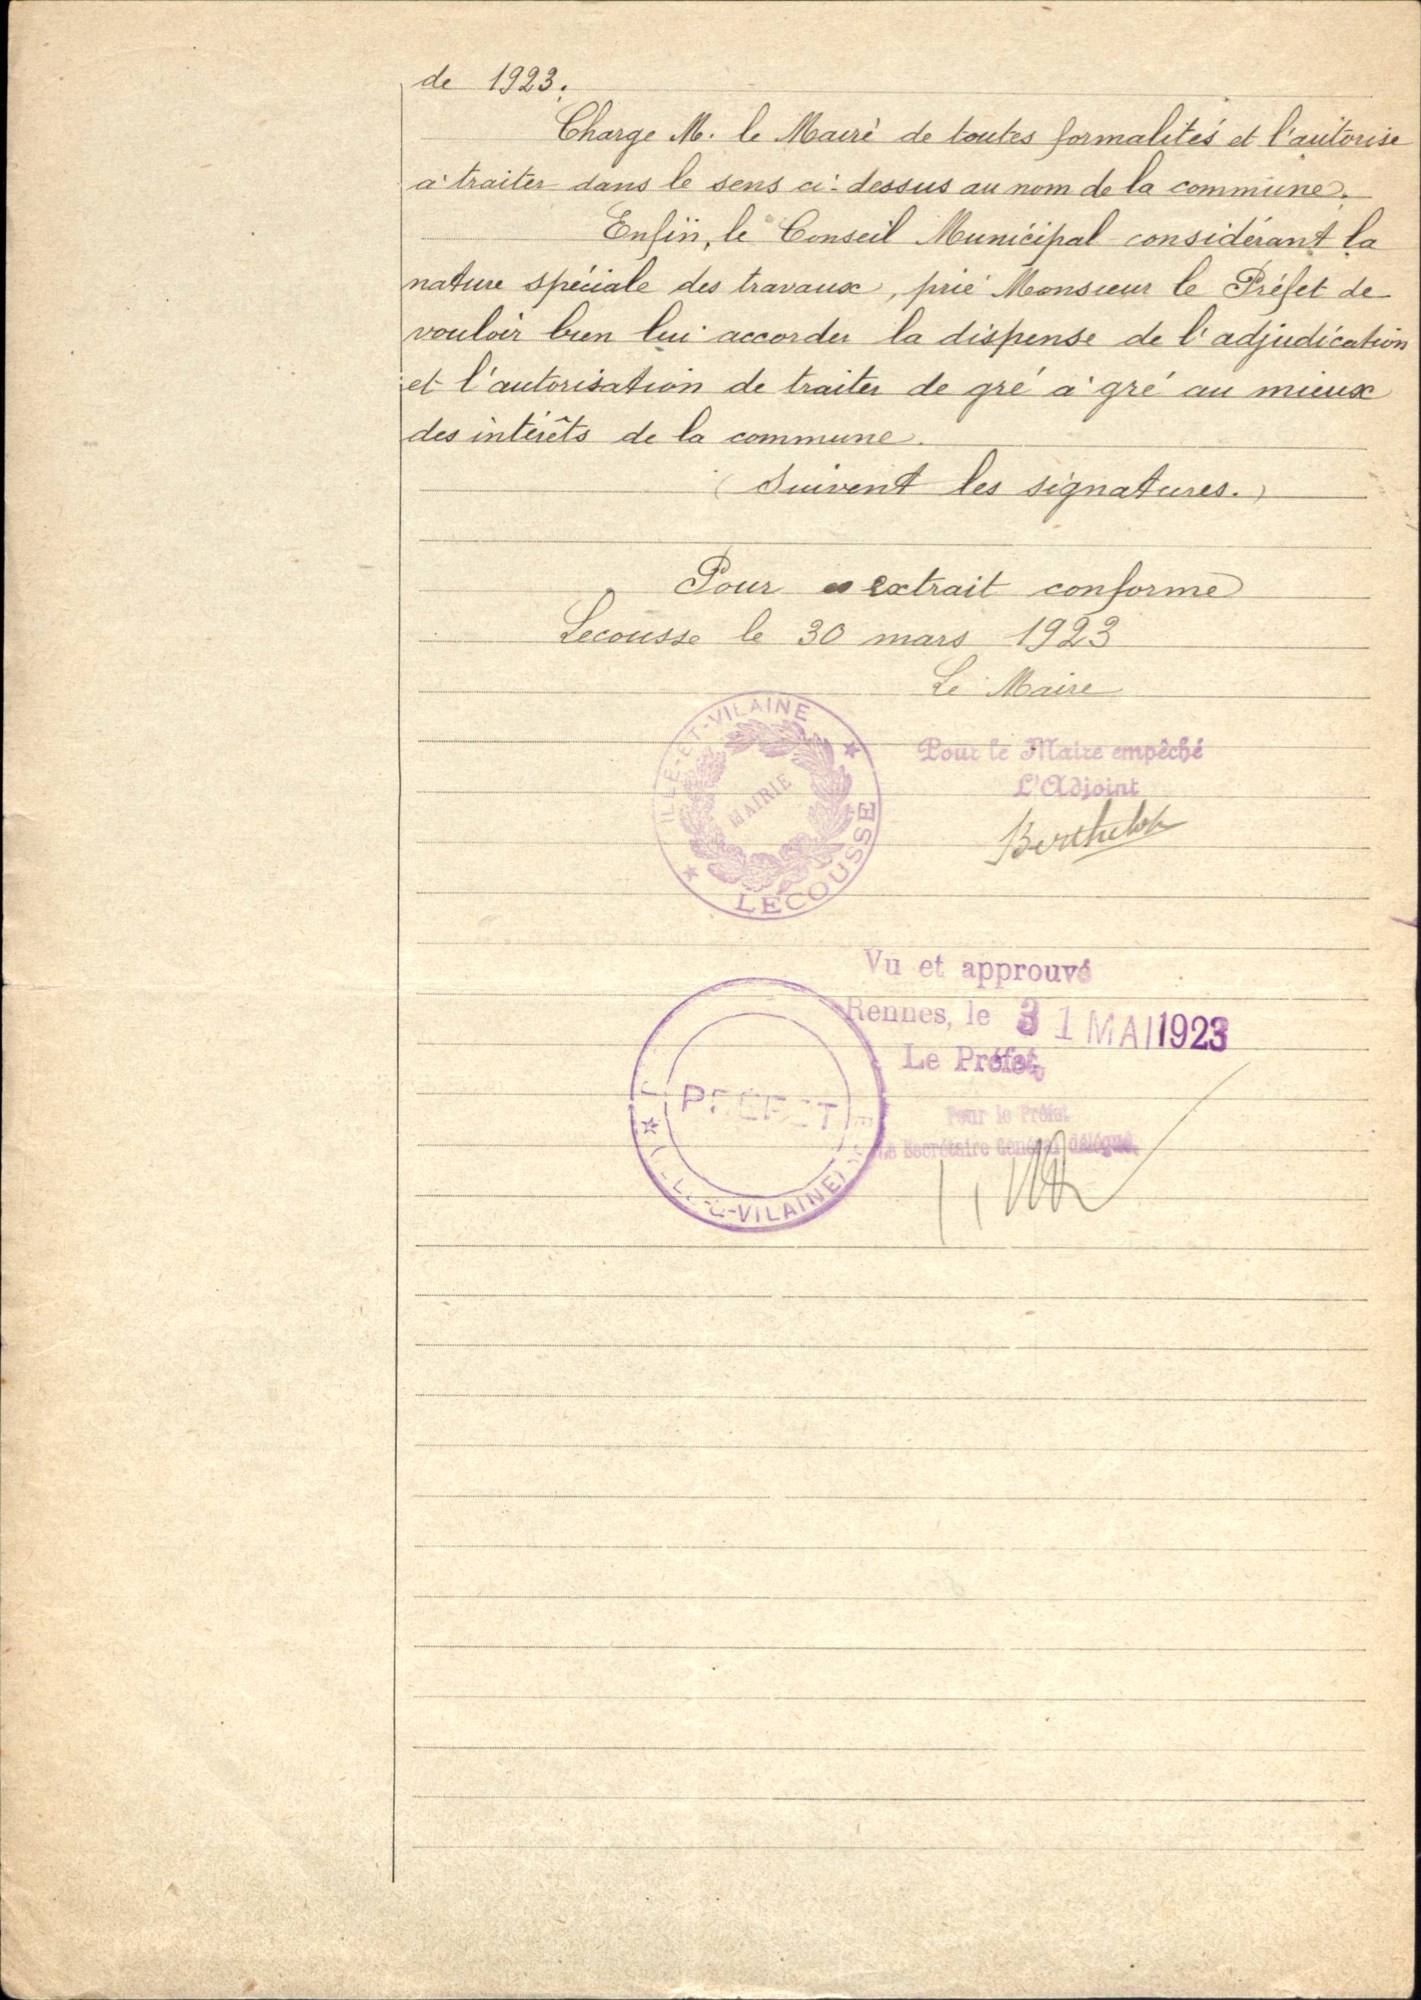 de 1923.
Charge M. le Maire de toutes formalités et l'autorise
à traiter dans le sens ci-dessus au nom de la commune.
Enfin, le Conseil Municipal considérant la
nature spéciale des travaux, prie Monsieur le Préfet de
vouloir bien lui accorder la dispense de l'adjudication
et l'autorisation de traiter de gré à gré au mieux
des intérêts de la commune.
(Suivent les signatures.)
Pour extrait conforme
Lecousse le 30 mars 1923
Le Maire
ILLE-ET-VILAINE
MAIRIE
LECOUSSE
Pour le Maire empêché
L'Adjoint
Berthelot
Vu et approuvé
Rennes, le 31 MAI 1923
Le Préfet,
PREFET
VILAINE)
Pour le Préfet
Le Secrétaire Général délégué,